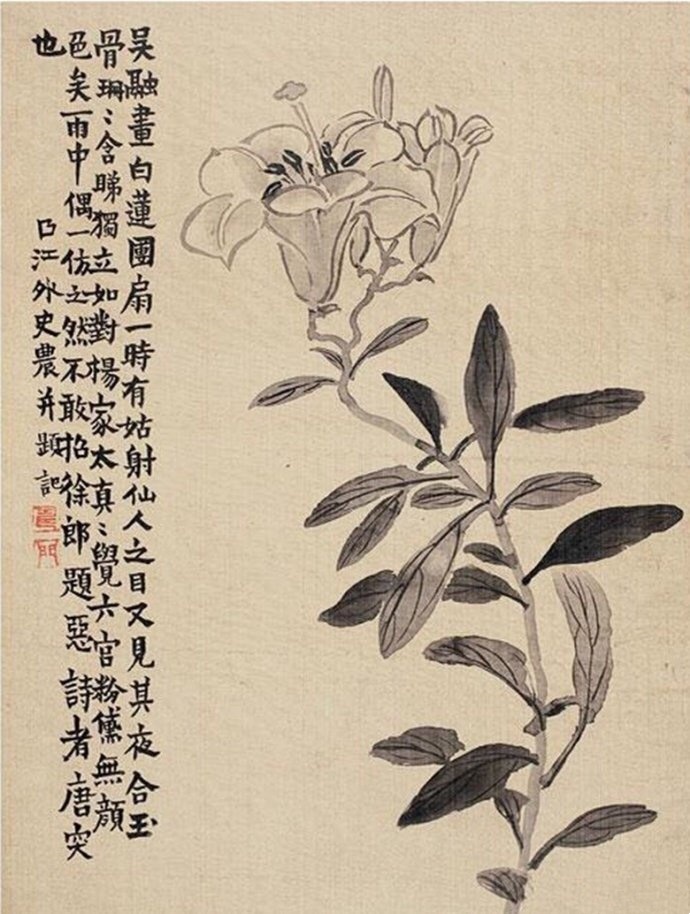 吳融畫白蓮團扇一時有姑射仙人之目又見其夜合玉
骨珊〻含睇獨立如對楊家太真〻覺六宮粉黛無顏
色矣雨中偶一仿之然不敢招徐郎題惡詩者唐突
也 曲江外史農并題記